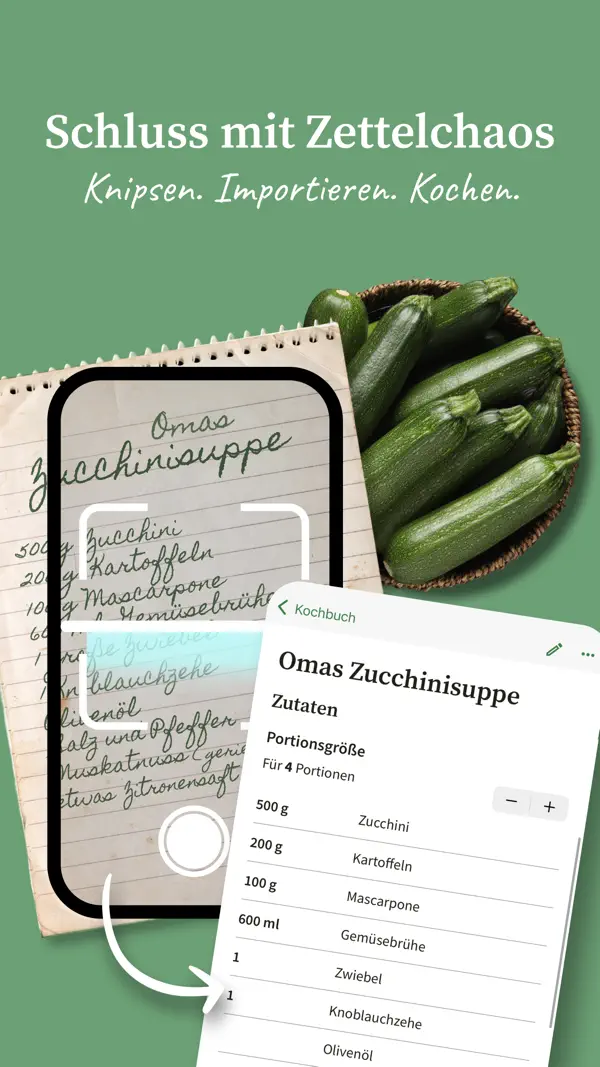 Schluss mit Zettelchaos
Knipsen. Importieren. Kochen.
Omas
Zucchinisuppe
500 g Zucchini
200 g Kartoffeln
100 g Mascarpone
Gemüsebrühe
große Zwiebel
Knoblauchzehe
Olivenöl
Salz und Pfeffer
Muskatnuss
etwas Zitronensaft
Kochbuch
Omas Zucchinisuppe
Zutaten
Portionsgröße
Für 4 Portionen
− +
500 g Zucchini
200 g Kartoffeln
100 g Mascarpone
600 ml Gemüsebrühe
1 Zwiebel
1 Knoblauchzehe
Olivenöl